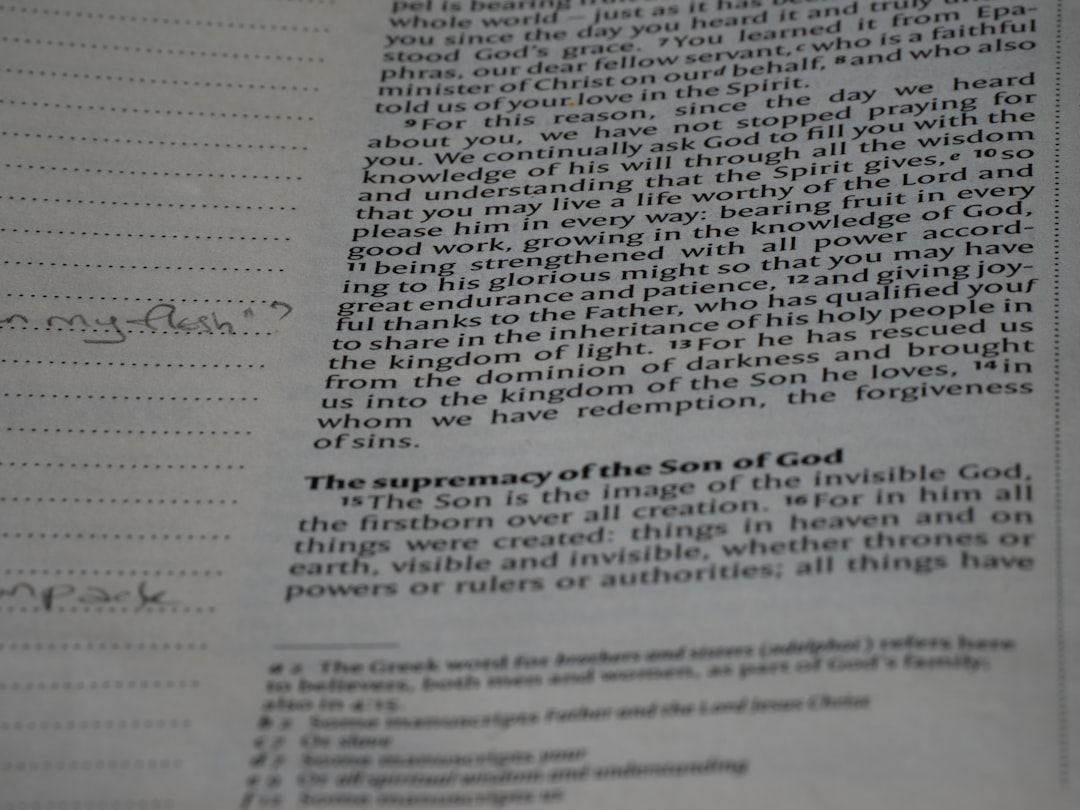 pel is bearing
whole world – just as it has
you since the day you heard it and truly
stood God's grace. 7 You learned it from Epa-
phras, our dear fellow servant, c who is a faithful
minister of Christ on our d behalf, 8 and who also
told us of your love in the Spirit.
9 For this reason, since the day we heard
about you, we have not stopped praying for
you. We continually ask God to fill you with the
knowledge of his will through all the wisdom
and understanding that the Spirit gives, e 10 so
that you may live a life worthy of the Lord and
please him in every way: bearing fruit in every
good work, growing in the knowledge of God,
11 being strengthened with all power accord-
ing to his glorious might so that you may have
great endurance and patience, 12 and giving joy-
ful thanks to the Father, who has qualified you f
to share in the inheritance of his holy people in
the kingdom of light. 13 For he has rescued us
from the dominion of darkness and brought
us into the kingdom of the Son he loves, 14 in
whom we have redemption, the forgiveness
of sins.
The supremacy of the Son of God
15 The Son is the image of the invisible God,
the firstborn over all creation. 16 For in him all
things were created: things in heaven and on
earth, visible and invisible, whether thrones or
powers or rulers or authorities; all things have
a 2 The Greek word for brothers and sisters (adelphoi) refers here
to believers, both men and women, as part of God's family;
also in 4:15.
b 2 Some manuscripts Father and the Lord Jesus Christ
c 7 Or slave
d 7 Some manuscripts your
e 9 Or all spiritual wisdom and understanding
f 12 Some manuscripts us
my flesh" ?